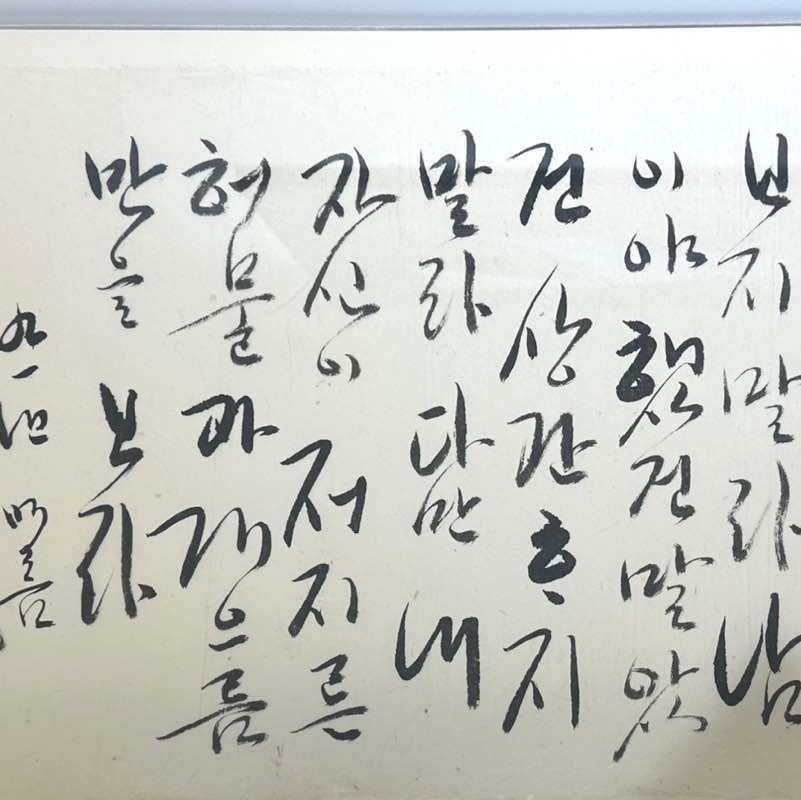 보지 말라 남
이야 했건 말았
건 상관ᄒᆞ지
말라 다만 내
자신이 저지른
허물과 개으름
만을 보라